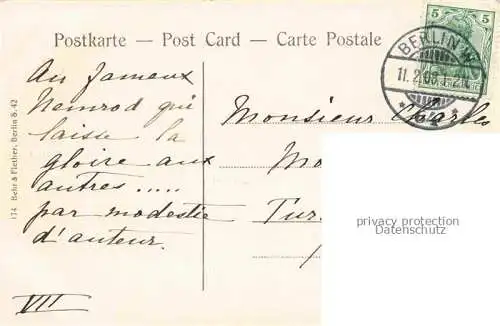 Postkarte — Post Card — Carte Postale
5 5
BERLIN W.
11.2.08
Au fameux
Nemrod qui
laisse la
gloire aux
autres .....
par modestie
d'auteur.
VII
Monsieur Charles
Mo
Tur
174 Behr & Flether, Berlin S. 42
privacy protection
Datenschutz